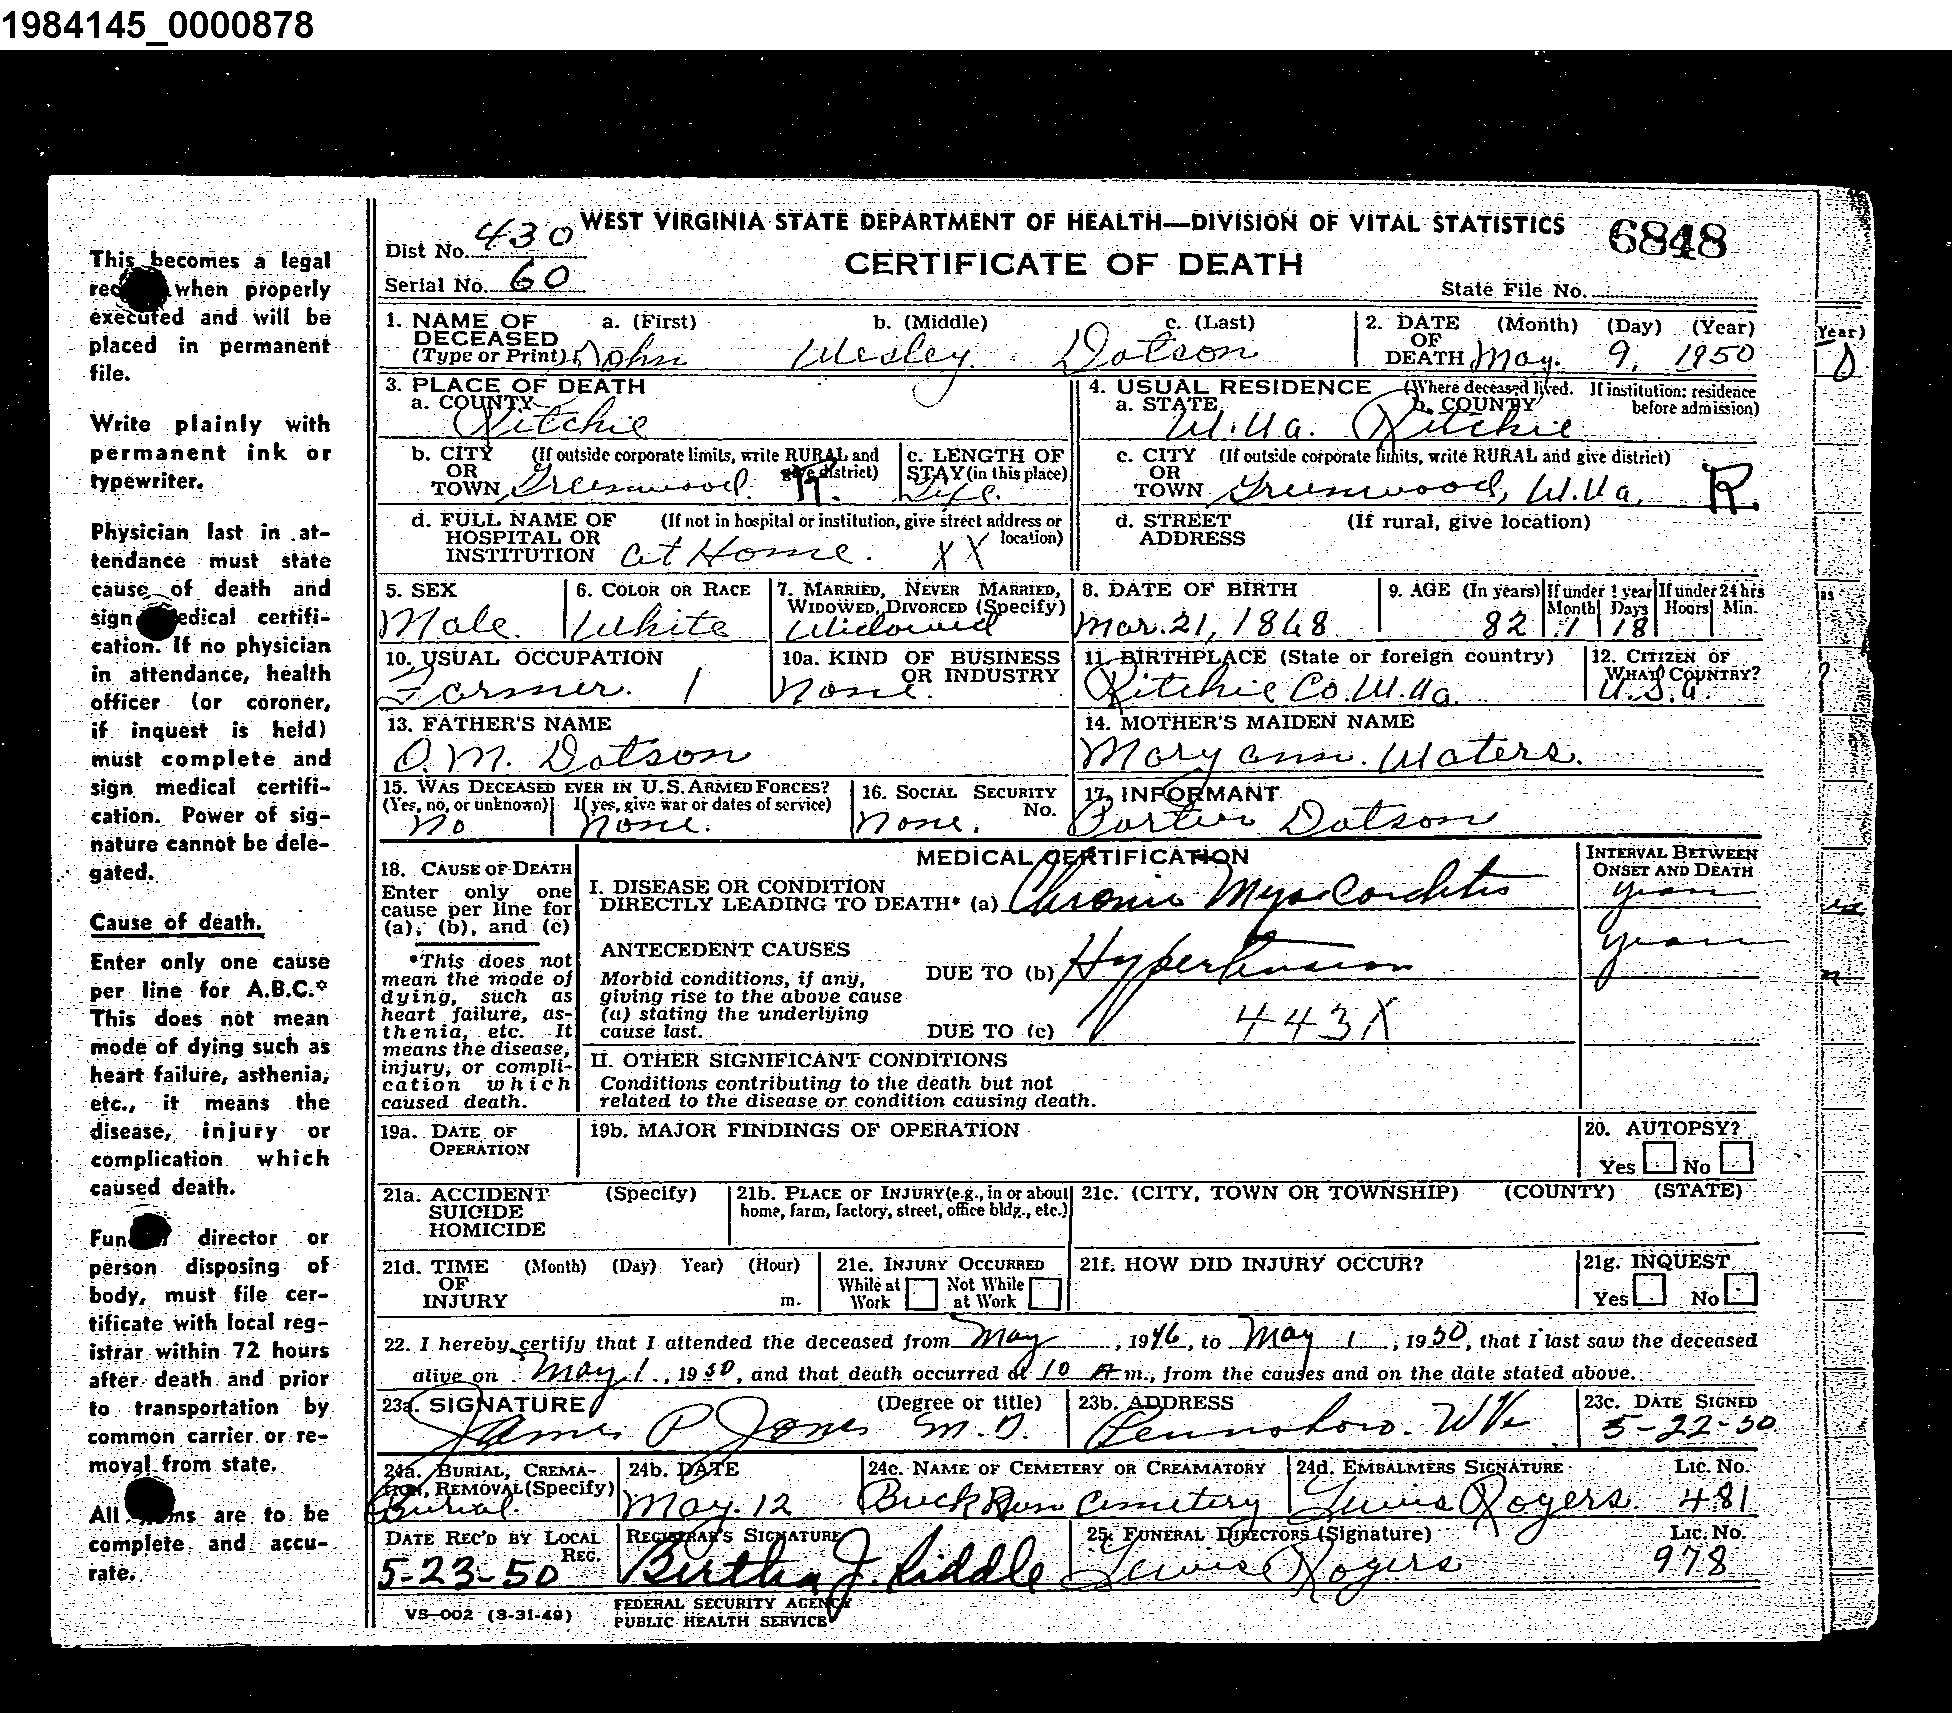 1984145_0000878
This becomes a legal
when properly
executed and will be
placed in permanent
file.
Write plainly with
permanent ink or
typewriter.
Physician last in at-
tendance must state
cause of death and
sign medical certifi-
cation. If no physician
in attendance, health
officer (or coroner,
if inquest is held)
must complete and
sign medical certifi-
cation. Power of sig-
nature cannot be dele-
gated.
Cause of death.
Enter only one cause
per line for A.B.C.*
This does not mean
mode of dying such as
heart failure, asthenia,
etc., it means the
disease, injury or
complication which
caused death.
director or
person disposing of
body, must file cer-
tificate with local reg-
istrar within 72 hours
after death and prior
to transportation by
common carrier or re-
moval from state.
All are to be
complete and accu-
rate.
WEST VIRGINIA STATE DEPARTMENT OF HEALTH—DIVISION OF VITAL STATISTICS 6848
Dist No. 430
CERTIFICATE OF DEATH
Serial No. 60 State File No.
1. NAME OF DECEASED (Type or Print) a. (First) b. (Middle) c. (Last)
John Wesley Dotson
2. DATE OF DEATH (Month) (Day) (Year)
May. 9, 1950
3. PLACE OF DEATH
a. COUNTY Ritchie
4. USUAL RESIDENCE (Where deceased lived. If institution: residence before admission)
a. STATE W.Va. b. COUNTY Ritchie
b. CITY OR TOWN (If outside corporate limits, write RURAL and give district) Greenwood. R.
c. LENGTH OF STAY (in this place) Life.
c. CITY OR TOWN (If outside corporate limits, write RURAL and give district) Greenwood, W.Va. R.
d. FULL NAME OF HOSPITAL OR INSTITUTION (If not in hospital or institution, give street address or location) at Home. XX
d. STREET ADDRESS (If rural, give location)
5. SEX Male.
6. COLOR OR RACE White
7. MARRIED, NEVER MARRIED, WIDOWED, DIVORCED (Specify) Widowed
8. DATE OF BIRTH Mar. 21, 1868
9. AGE (In years) 82 If under 1 year Month 1 Days 18 If under 24 hrs Hours Min.
10. USUAL OCCUPATION Farmer. 1
10a. KIND OF BUSINESS OR INDUSTRY None.
11. BIRTHPLACE (State or foreign country) Ritchie Co. W.Va.
12. CITIZEN OF WHAT COUNTRY? U.S.A.
13. FATHER'S NAME O. M. Dotson
14. MOTHER'S MAIDEN NAME Mary Ann. Waters.
15. WAS DECEASED EVER IN U.S. ARMED FORCES? (Yes, no, or unknown) No If yes, give war or dates of service) None.
16. SOCIAL SECURITY No. None.
17. INFORMANT Dotson
MEDICAL CERTIFICATION
18. CAUSE OF DEATH
Enter only one
cause per line for
(a), (b), and (c)
*This does not
mean the mode of
dying, such as
heart failure, as-
thenia, etc. It
means the disease,
injury, or compli-
cation which
caused death.
I. DISEASE OR CONDITION
DIRECTLY LEADING TO DEATH* (a) Chronic Myocarditis
INTERVAL BETWEEN ONSET AND DEATH
years
ANTECEDENT CAUSES
Morbid conditions, if any,
giving rise to the above cause
(a) stating the underlying
cause last.
DUE TO (b) Hypertension years
DUE TO (c) 443X
II. OTHER SIGNIFICANT CONDITIONS
Conditions contributing to the death but not
related to the disease or condition causing death.
19a. DATE OF OPERATION
19b. MAJOR FINDINGS OF OPERATION
20. AUTOPSY?
Yes No
21a. ACCIDENT SUICIDE HOMICIDE (Specify)
21b. PLACE OF INJURY (e.g., in or about home, farm, factory, street, office bldg., etc.)
21c. (CITY, TOWN OR TOWNSHIP) (COUNTY) (STATE)
21d. TIME OF INJURY (Month) (Day) Year) (Hour) m.
21e. INJURY OCCURRED While at Work Not While at Work
21f. HOW DID INJURY OCCUR?
21g. INQUEST Yes No
22. I hereby certify that I attended the deceased from May, 1946, to May 1, 1950, that I last saw the deceased
alive on May 1, 1950, and that death occurred at 10 A m., from the causes and on the date stated above.
23a. SIGNATURE (Degree or title) James P Jones M.D.
23b. ADDRESS Pennsboro. W Va
23c. DATE SIGNED 5-22-50
24a. BURIAL, CREMATION, REMOVAL (Specify) Burial.
24b. DATE May. 12
24c. NAME OF CEMETERY OR CREAMATORY Buck Run Cemetery
24d. EMBALMERS SIGNATURE Lewis Rogers. Lic. No. 481
DATE REC'D BY LOCAL REG. 5-23-50
REGISTRAR'S SIGNATURE Bertha J. Riddle
25. FUNERAL DIRECTORS (Signature) Lewis Rogers Lic. No. 978
VS-002 (3-31-49)
FEDERAL SECURITY AGENCY
PUBLIC HEALTH SERVICE